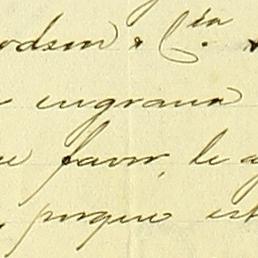 odson & Cia
engrana
favor, le a
, porque est